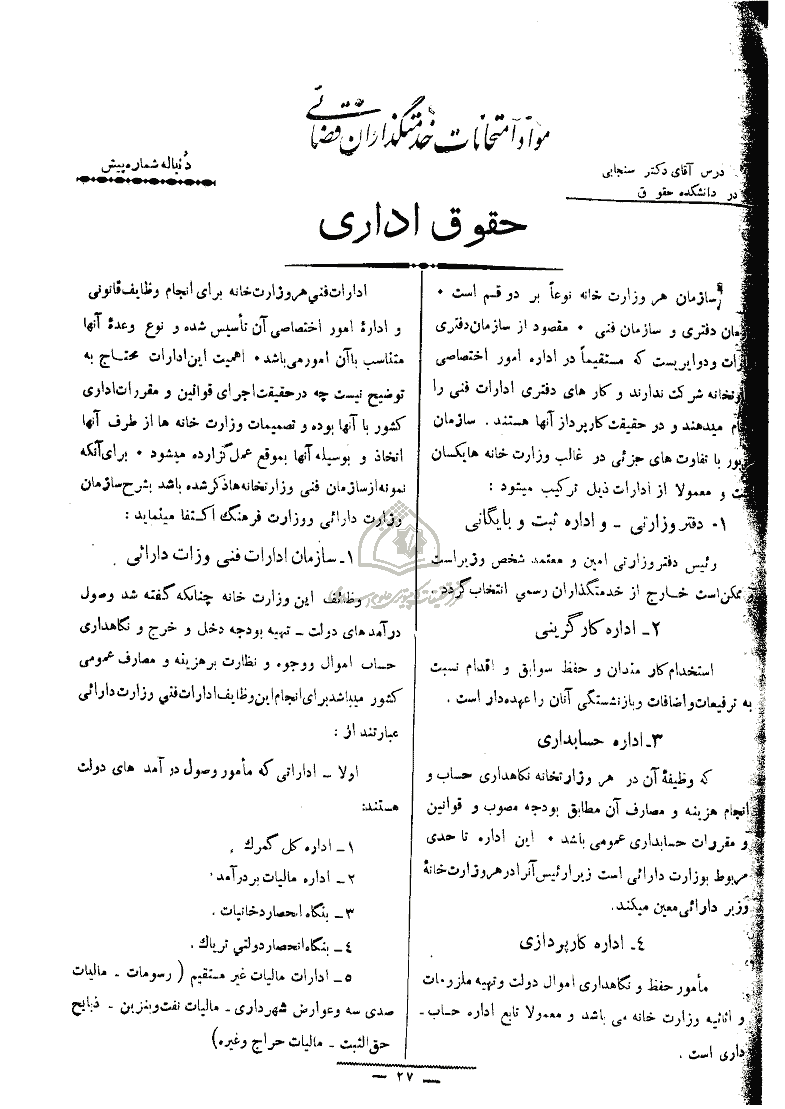 مواد امتحانات خدمتگذاران قضائی
درس آقای دکتر سنجابی
در دانشکده حقوق
دنباله شماره پیش
حقوق اداری
سازمان هر وزارت خانه نوعاً بر دو قسم است .
دفتری و سازمان فنی . مقصود از سازمان دفتری
ودوایریست که مستقیماً در اداره امور اختصاصی
شرکت ندارند و کار های دفتری ادارات فنی را
میدهند و در حقیقت کارپرداز آنها هستند . سازمان
با تفاوت های جزئی در غالب وزارت خانه ها یکسان
و معمولا از ادارات ذیل ترکیب میشود :
۱- دفتر وزارتی - و اداره ثبت و بایگانی
رئیس دفتر وزارتی امین و معتمد شخص وزیر است
و ممکن است خارج از خدمتگذاران رسمی انتخاب گردد .
۲- اداره کارگزینی
استخدام کارمندان و حفظ سوابق و اقدام نسبت
به ترفیعات و اضافات و بازنشستگی آنان را عهده دار است .
۳- اداره حسابداری
که وظیفهٔ آن در هر وزارتخانه نگاهداری حساب و
انجام هزینه و مصارف آن مطابق بودجه مصوب و قوانین
و مقررات حسابداری عمومی باشد . این اداره تا حدی
مربوط بوزارت دارائی است زیرا رئیس آنرا در هر وزارت خانهٔ
وزیر دارائی معین میکند.
٤- اداره کارپردازی
مأمور حفظ و نگاهداری اموال دولت و تهیه ملزومات
و اثاثیه وزارت خانه می باشد و معمولا تابع اداره حساب-
داری است .
ادارات فنی هر وزارت خانه برای انجام وظایف قانونی
و ادارهٔ امور اختصاصی آن تأسیس شده و نوع وعدهٔ آنها
متناسب باآن امور می باشد . اهمیت این ادارات محتاج به
توضیح نیست چه در حقیقت اجرای قوانین و مقررات اداری
کشور با آنها بوده و تصمیمات وزارت خانه ها از طرف آنها
اتخاذ و بوسیله آنها بموقع عمل گزارده میشود . برای آنکه
نمونه از سازمان فنی وزارتخانه ها ذکر شده باشد بشرح سازمان
وزارت دارائی و وزارت فرهنگ اکتفا مینماید :
۱- سازمان ادارات فنی وزات دارائی
وظائف این وزارت خانه چنانکه گفته شد وصول
درآمد های دولت - تهیه بودجه دخل و خرج و نگاهداری
حساب اموال ووجوه و نظارت بر هزینه و مصارف عمومی
کشور میباشد برای انجام این وظایف ادارات فنی وزارت دارائی
عبارتند از :
اولا - اداراتی که مأمور وصول درآمد های دولت
هستند:
۱- اداره کل گمرك .
۲- اداره مالیات بردرآمد .
۳- بنگاه انحصار دخانیات .
٤- بنگاه انحصار دولتی تریاك .
۵- ادارات مالیات غیر مستقیم ( رسومات - مالیات
صدی سه و عوارض شهرداری - مالیات نفت و بنزین - ذبایح
حق الثبت - مالیات حراج و غیره)
- ۲۷ -